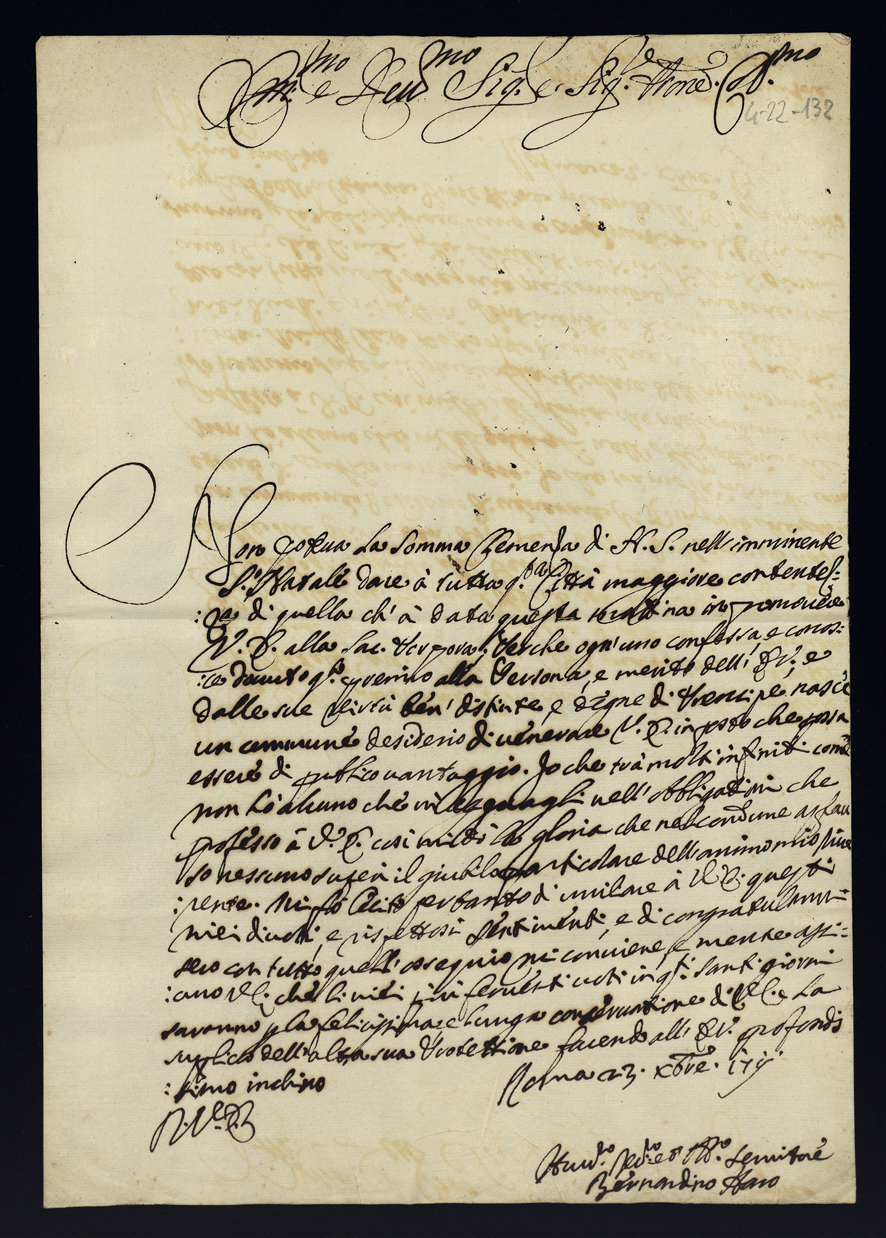 Em.mo e Reu.mo Sig.e, Sig.re Prone. Col.mo
4-22-132
Non poteua la somma Clemenza di N. S. nell'imminente
S.o Natale dare à tutta q.sta Città maggiore contentez=
:za di quella ch'à data questa mattina in promouere
V. E. alla Sac. Porpora; Perche ogn'uno confessa, e conos:
:ce douuto q.sto premio alla Persona, e merito dell'E.V. e
dalle sue virtù ben' distinte, e degne di Prencipe, nasce
un commune desiderio di uenerare V. E. in posto che possa
essere di publico uantaggio. Io che trà molti infiniti come
non hò alcuno che mi uguagli nell'obbligationi che
professo à V. E. cosi mi dò la gloria che nel comune applau
so nessuno superi il giubilo particolare dell'animo mio riue
:rente. Mi fò lecito pertanto di umiliare à V. E. questi
miei diuoti, e rispettosi sentimenti, e di congratularmi=
seco con tutto quell'ossequio mi conuiene, e mentre assi=
:curo V.E. che li miei più feruenti uoti in q.ti santi giorni
saranno p la felicissima, e lunga conseruatione di V.E. e la
supplico dell'alta sua Protettione facendo all'E.V. profondis
:simo inchino
Roma 23. xbre.
D. V. E.
Humil.mo Deu.mo et Obl.mo Seruitore
Bernardino